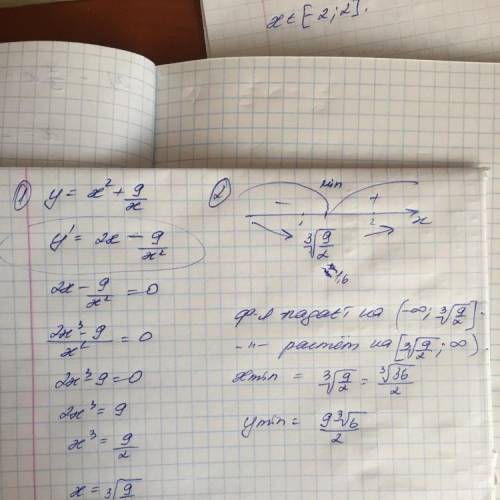 x ∈ [-2; 2].
① y = x² + 9/x
y' = 2x - 9/x²
2x - 9/x² = 0
(2x³ - 9)/x² = 0
2x³ - 9 = 0
2x³ = 9
x³ = 9/2
x = ∛(9/2)
② min
- + x
1 2
∛(9/2)
≈1,6
ф-я падает на (-∞; ∛(9/2)].
-"- растёт на [∛(9/2); ∞)
xmin = ∛(9/2) = ∛36/2
ymin = 9∛6/2